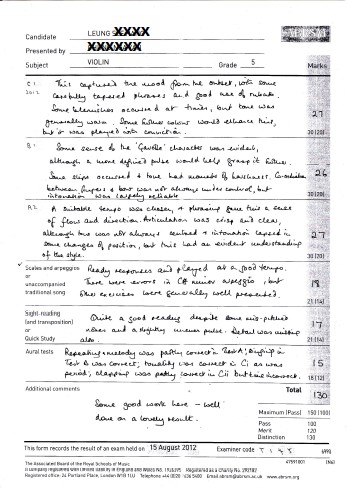 Candidate LEUNG XXXX
Presented by XXXXXX
Subject VIOLIN Grade 5 Marks
C1 This captured the mood from the outset, with some
carefully tapered phrases and good use of rubato.
Some blemishes occurred at times, but tone was
generally warm. Some further colour would enhance this,
but it was played with conviction.
27
30 (20)
B1 Some sense of the 'Gavotte' character was evident,
although a more defined pulse would help grasp it further.
Some slips occurred & tone had moments of harshness. Co-ordination
between fingers & bow was not always under control, but
intonation was largely reliable
26
30 (20)
A2 A suitable tempo was chosen, & phrasing gave this a sense
of flow and direction. Articulation was crisp and clear,
although tone was not always centred & intonation lapsed in
some changes of position, but this had an evident understanding
of the style.
27
30 (20)
Scales and arpeggios
or
unaccompanied
traditional song
Ready responses and played at a good tempo.
There were errors in C# minor arpeggio, but
other exercises were generally well presented.
18
21 (14)
Sight-reading
(and transposition)
or
Quick Study
Quite a good reading despite some mis-pitched
notes and a slightly uneven pulse. Detail was missing
also.
17
21 (14)
Aural tests
Repeating melody was partly correct in Test A; singing in
Test B was correct; tonality was correct in Ci as was
period; clapping was partly correct in Cii but time incorrect.
15
18 (12)
Additional comments
Total 130
Some good work here - well
done on a lovely result.
Maximum (Pass) 150 (100)
Pass 100
Merit 120
Distinction 130
This form records the result of an exam held on 15 August 2012 Examiner code
The Associated Board of the Royal Schools of Music
A company registered in England and Wales No. 1926395 Registered as a charity No. 292182
Registered office: 24 Portland Place, London W1B 1LU Telephone +44 (0)20 7636 5400 Email abrsm@abrsm.ac.uk www.abrsm.org